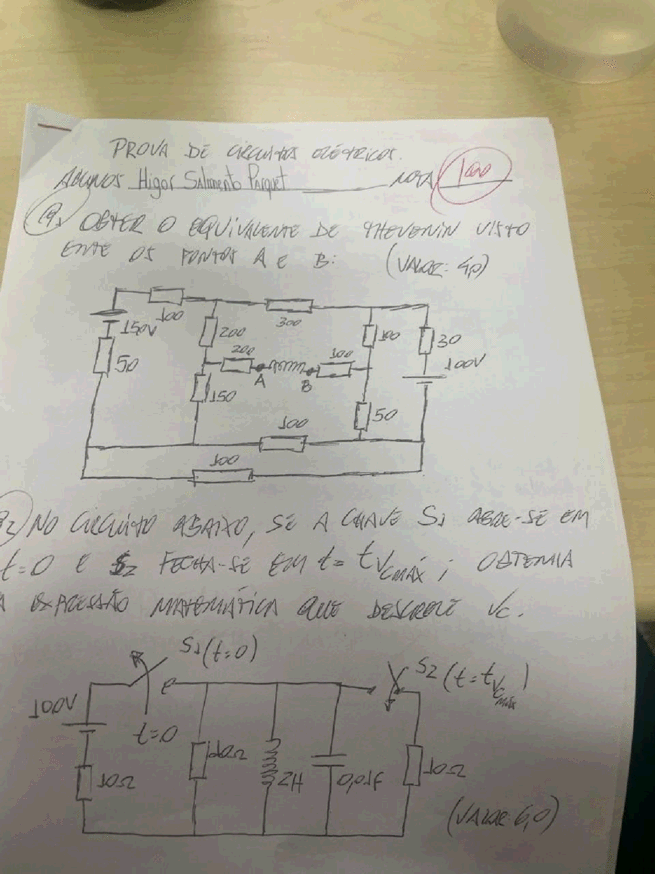 PROVA DE CIRCUITOS ELÉTRICOS.
ALUNOS Higor Salmento Parquet NOTA 100
1) OBTER O EQUIVALENTE DE THEVENIN VISTO
ENTE OS PONTOS A E B: (VALOR: 4,0)
100
300
150V
200
100
30
50
200
100
100V
A
B
150
50
100
100
2) NO CIRCUITO ABAIXO, SE A CHAVE S1 ABRE-SE EM
t=0 E S2 FECHA-SE EM t= tVCMÁX; OBTENHA
A EXPRESSÃO MATEMÁTICA QUE DESCREVE VC.
S1(t=0)
S2 (t=tVCMÁX)
100V
t=0
10Ω
10Ω
2H
0,01F
10Ω
(VALOR: 6,0)